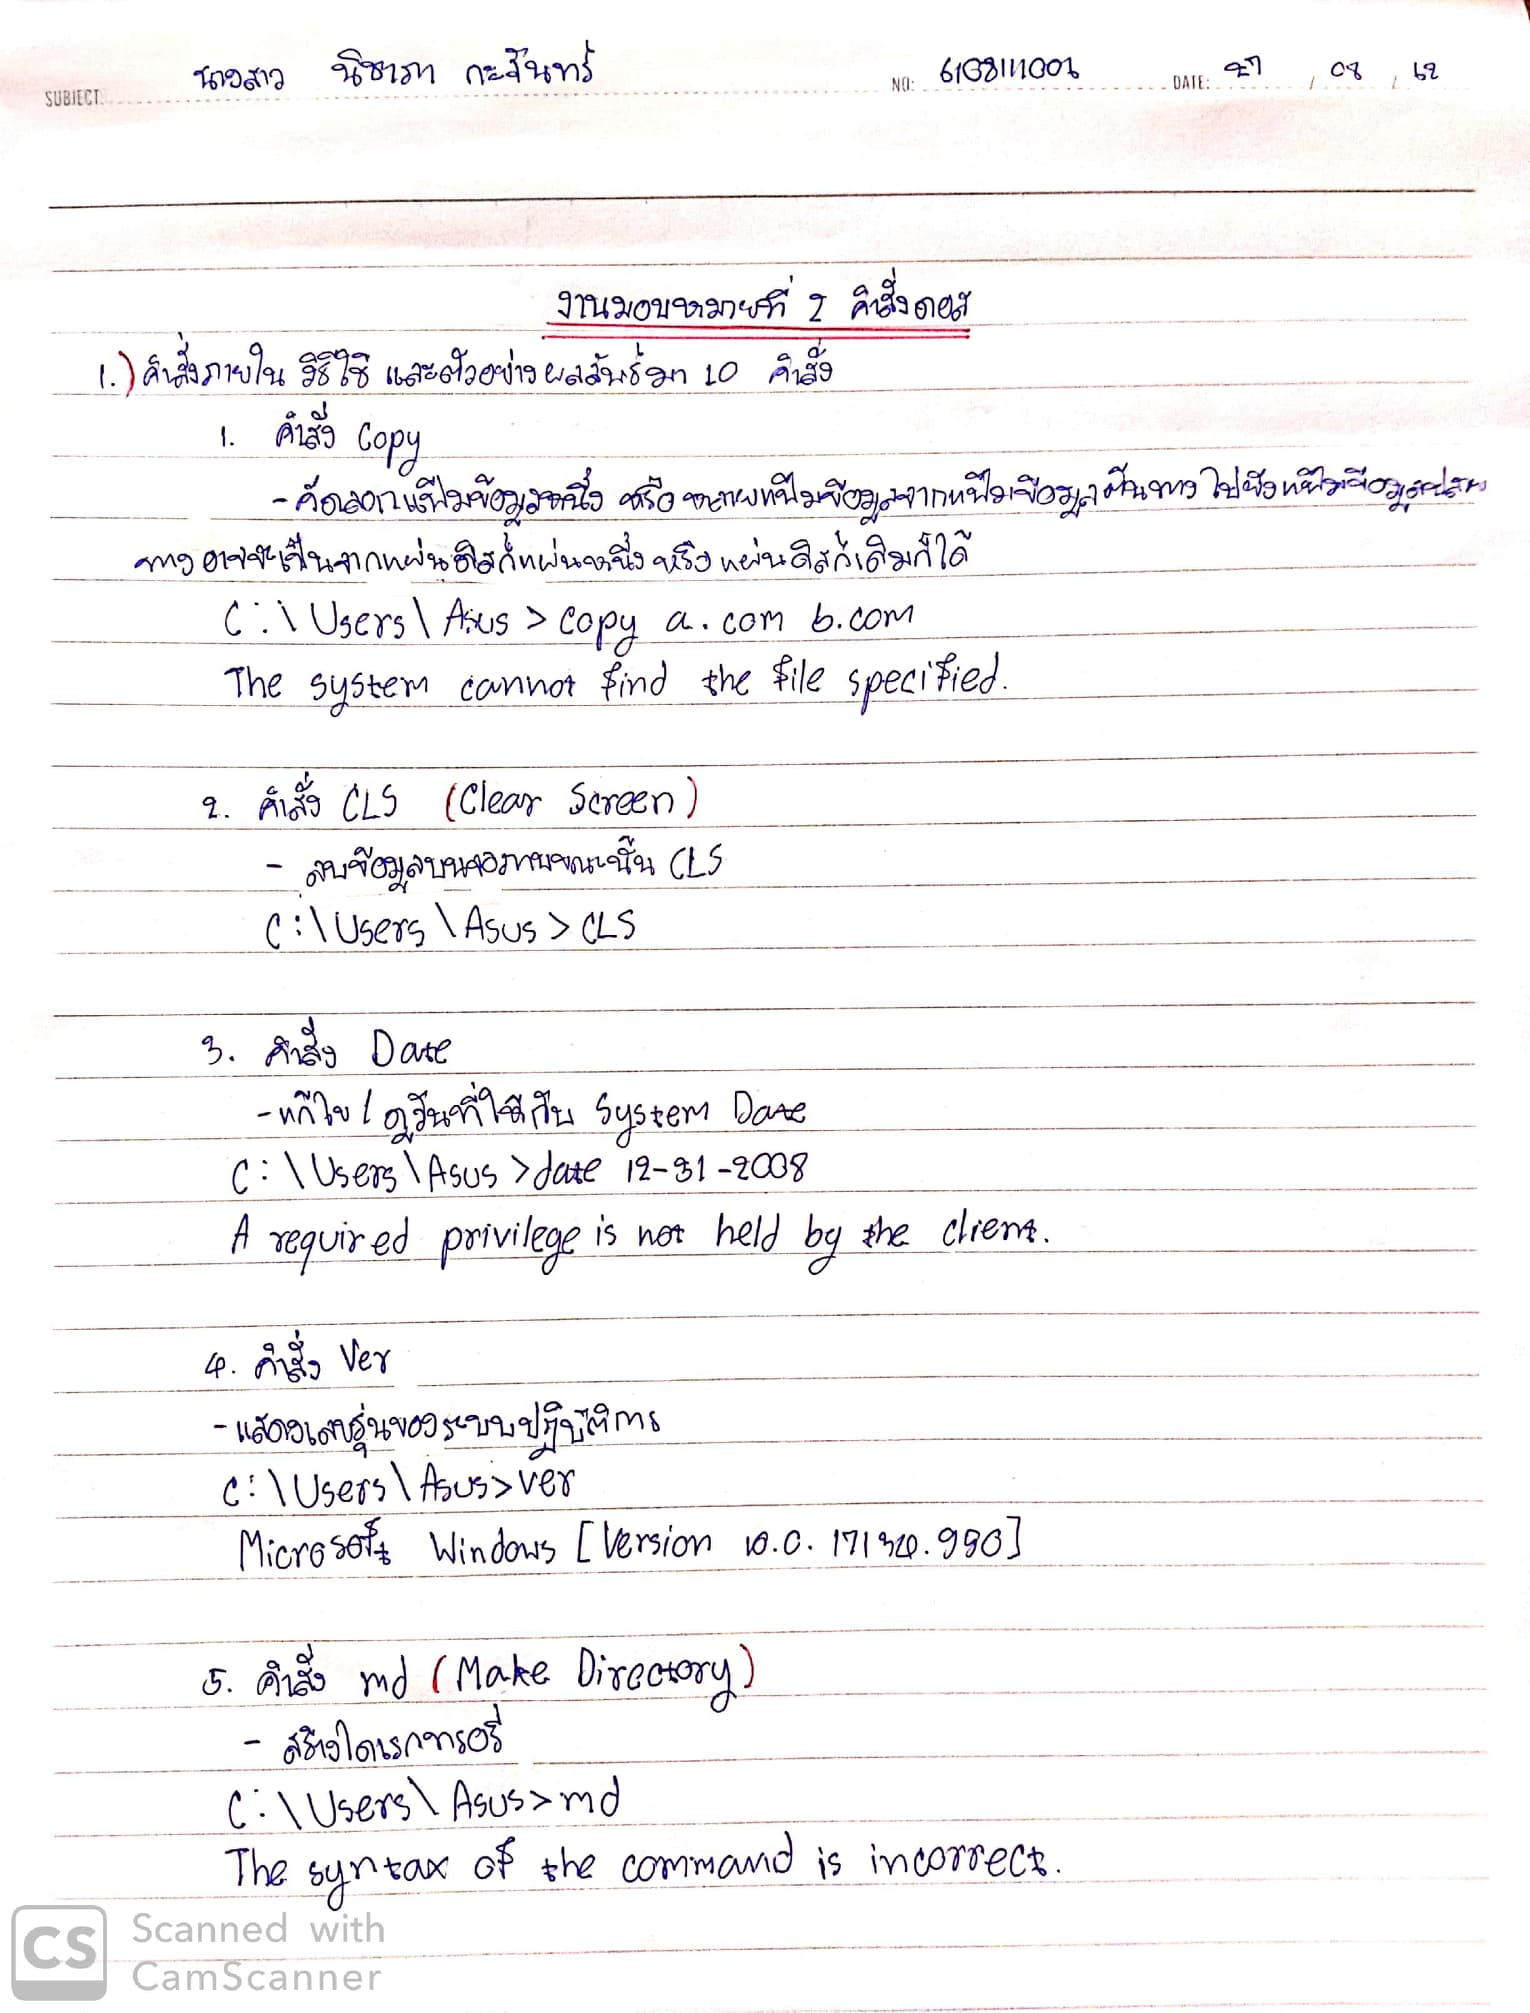 SUBJECT: นางสาว นิชาภา กะจันทร์ NO: 6108111006 DATE: 27 / 08 / 62
งานมอบหมายที่ 2 คำสั่งดอส
1.) คำสั่งภายใน วิธีใช้ และตัวอย่างผลลัพธ์มา 10 คำสั่ง
1. คำสั่ง Copy
- คัดลอกแฟ้มข้อมูลหนึ่ง หรือ หลายแฟ้มข้อมูลจากแฟ้มข้อมูลต้นทาง ไปยังแฟ้มข้อมูลปลาย
ทาง อาจจะเป็นจากแผ่นดิสก์แผ่นหนึ่ง หรือ แผ่นดิสก์เดิมก็ได้
C:\Users\Asus>copy a.com b.com
The system cannot find the file specified.
2. คำสั่ง CLS (Clear Screen)
- ลบข้อมูลบนจอภาพขณะนั้น CLS
C:\Users\Asus>CLS
3. คำสั่ง Date
- แก้ไข / ดูวันที่ให้กับ System Date
C:\Users\Asus>date 12-31-2008
A required privilege is not held by the client.
4. คำสั่ง Ver
- แสดงเลขรุ่นของระบบปฏิบัติการ
C:\Users\Asus>ver
Microsoft Windows [Version 10.0.17134.950]
5. คำสั่ง md (Make Directory)
- สร้างไดเรกทรอรี่
C:\Users\Asus>md
The syntax of the command is incorrect.
CS Scanned with
CamScanner